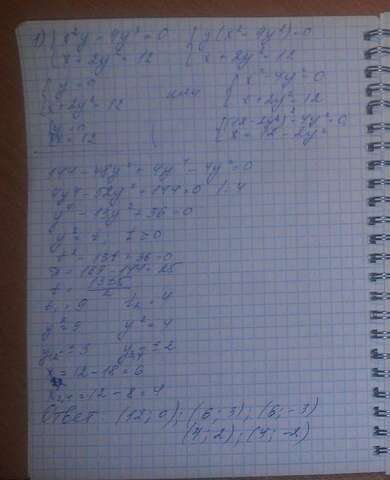 1) { x²y - 4y³ = 0   { y(x² - 4y²) = 0
{ x + 2y² = 12   { x + 2y² = 12
{ y = 0   или   { x² - 4y² = 0
{ x + 2y² = 12   { x + 2y² = 12
{ y = 0   { (12 - 2y²)² - 4y² = 0
{ x = 12   { x = 12 - 2y²
144 - 48y² + 4y⁴ - 4y² = 0
4y⁴ - 52y² + 144 = 0 /:4
y⁴ - 13y² + 36 = 0
y² = t, t > 0
t² - 13t + 36 = 0
D = 169 - 144 = 25
t = (13 ± 5)/2
t₁ = 9   t₂ = 4
y² = 9   y² = 4
y₁,₂ = ±3   y₃,₄ = ±2
x = 12 - 18 = 6
x₃,₄ = 12 - 8 = 4
Ответ: (12; 0); (6; 3); (6; -3)
(4; 2); (4; -2)